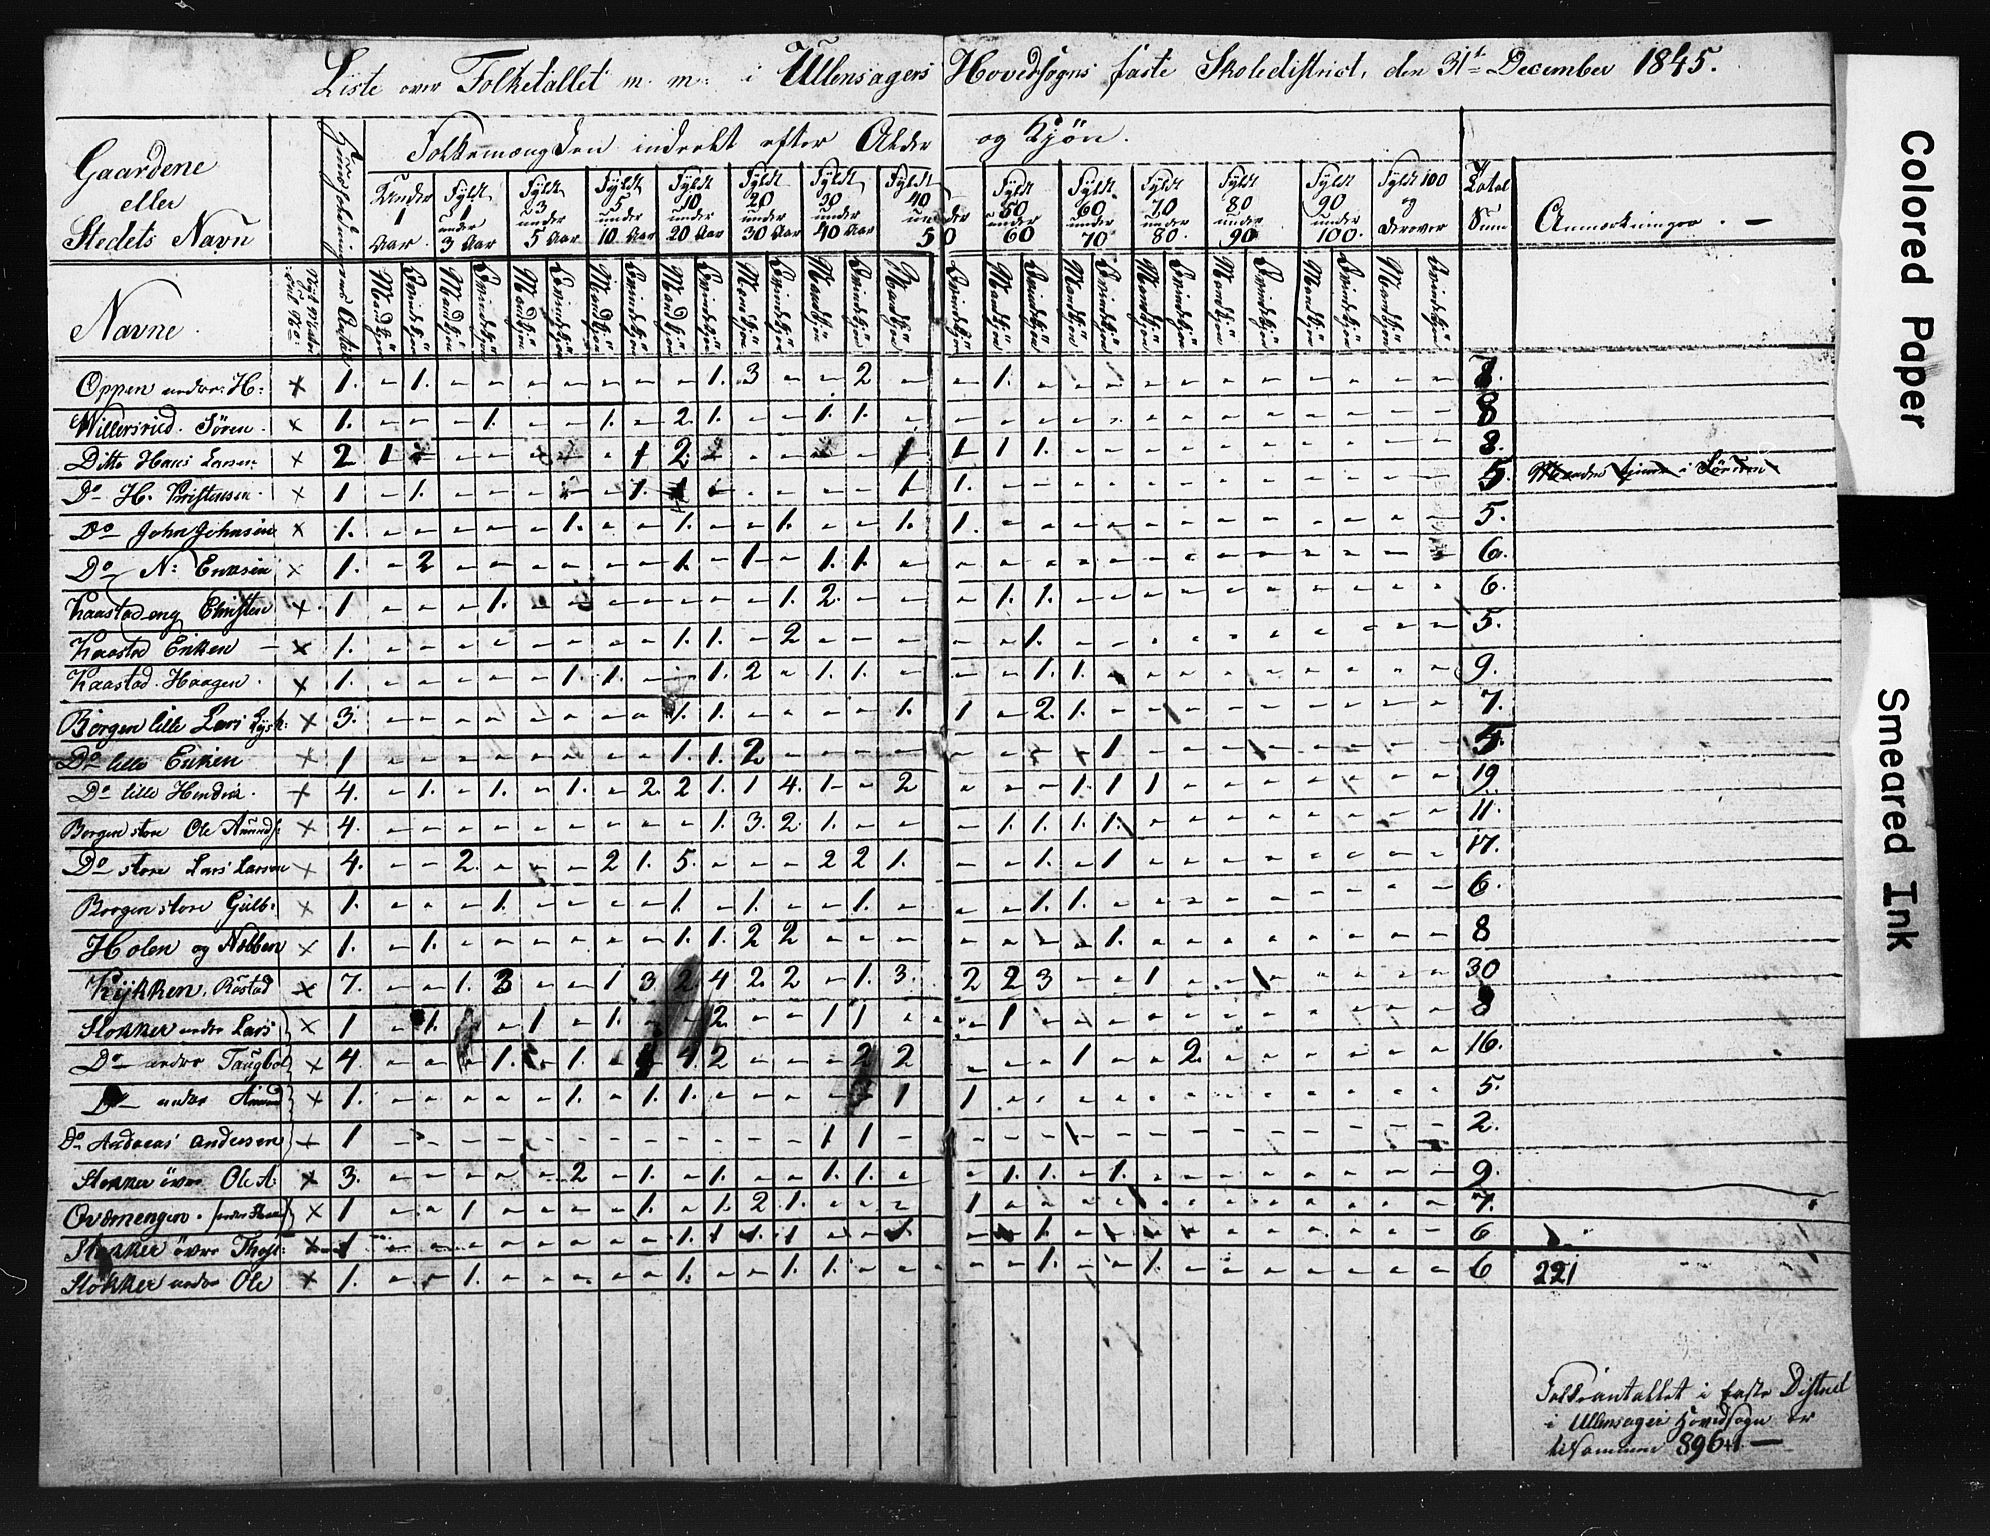 Liste over Folketallet m. m. i Ullensagers Hovedsogns faste Skoledistrict, den 31te December 1845.
Gaardene eller Stedets Navn
Folkemængden inddeelt efter Alder og Kjøn.
Under 1 Aar.
Fyldt 1 under 3 Aar
Fyldt 3 under 5 Aar
Fyldt 5 under 10 Aar
Fyldt 10 under 20 Aar
Fyldt 20 under 30 Aar
Fyldt 30 under 40 Aar
Fyldt 40 under 50
Fyldt 50 under 60
Fyldt 60 under 70
Fyldt 70 under 80.
Fyldt 80 under 90
Fyldt 90 under 100.
Fyldt 100 og derover
Total Sum
Anmærkninger. —
Navne.
Mandkjøn Qvindekjøn Mandkjøn Qvindekjøn Mandkjøn Qvindekjøn Mandkjøn Qvindekjøn Mandkjøn Qvindekjøn Mandkjøn Qvindekjøn Mandkjøn Qvindekjøn Mandkjøn Qvindekjøn Mandkjøn Qvindekjøn Mandkjøn Qvindekjøn Mandkjøn Qvindekjøn Mandkjøn Qvindekjøn Mandkjøn Qvindekjøn Mandkjøn Qvindekjøn
Oppen nedre: H: × 1. – 1. – – – – – – – 1. 3 – – 2 – – 1.
Willersrud. Sören. × 1. – – – 1. – – 1. – 2. 1. – – 1. 1. – 8
Ditto Hans Larsen × 2 1 1 2 1 1 1 1. 8.
Do H. Christensen. × 1 – 1. 1. 1 1 1. 5.
Do John Johnsen × 1. 1. 1. 1. 1. 1. 5.
Do N: Eriksen × 1. – 2 1. 1 1. 1. 6.
Kaastad eng Christen × 1 – – – 1. 1. 2. 1. 1. 6.
Kaastad Eriken – × 1. 1. 1. – 2 1. 5.
Kaastad Haagen. × 1. 1. 1. 1. 2 – 1. 1. 1. 1. 9.
Borgen lille Lars × 3. 1. 1. 1. 1 – 2. 1. 7.
Do lille Eriken × 1 1. 1. 2 1
Do lille Hendrik. × 4. – 1. – 1. – 1. – 2. 2 1. 1 4. 1. – 2 1. 1 1 19.
Borgen store Ole Amunds: × 4. 1. 3. 2. 1. 1. 1. 1. 1. 11.
Do store Lars Larsen × 4. – – 2. 2 1. 5. 2 2 1. 1. – 1 17.
Borgen store Gulb: × 1. – – – 1. 1. – 1. 1. 1. 1. 6.
Holen og Nibben × 1. – 1. 1. 1. 2 2 1. 8
Kykken, Rastad × 7. – – 1. 3 – – 1 3 2 4 2 2 – 1. 3. 2 2 3 – – 1 30
Stokker nedre Lars × 1 – 1. 1 – 1. 2. 1 1 1 8
Do nedre Taugbol × 4 – – – 1. 1. 4. 2 2 2 1 2 16.
Do nedre Amund × 1. 1. – 1. 1. 1 1 5.
Do Andreas Andersen × 1 1 1 2.
Stokker övre Ole A: × 3. 2 – 1. – 1. 1. 1. 1. 1. – 1. 9.
Ovdmengen. × 1 – – 1 1. – 1. 2 1. 1 7.
Stokker övre × 1 1. 1 1. 1 1 1. 6
Stokker nedre Ole × 1. – – 1. 1. 1. 1. 1. 1. 6
221
Folkeantallet i faste District
i Ullensager Hovedsogn er
tilsammen 8964. —
Colored Paper
Smeared Ink